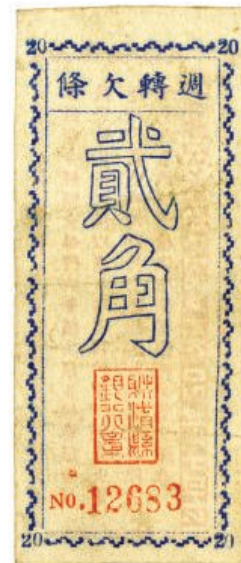 20 20
週轉欠條
貳角
NO.12683
20 20